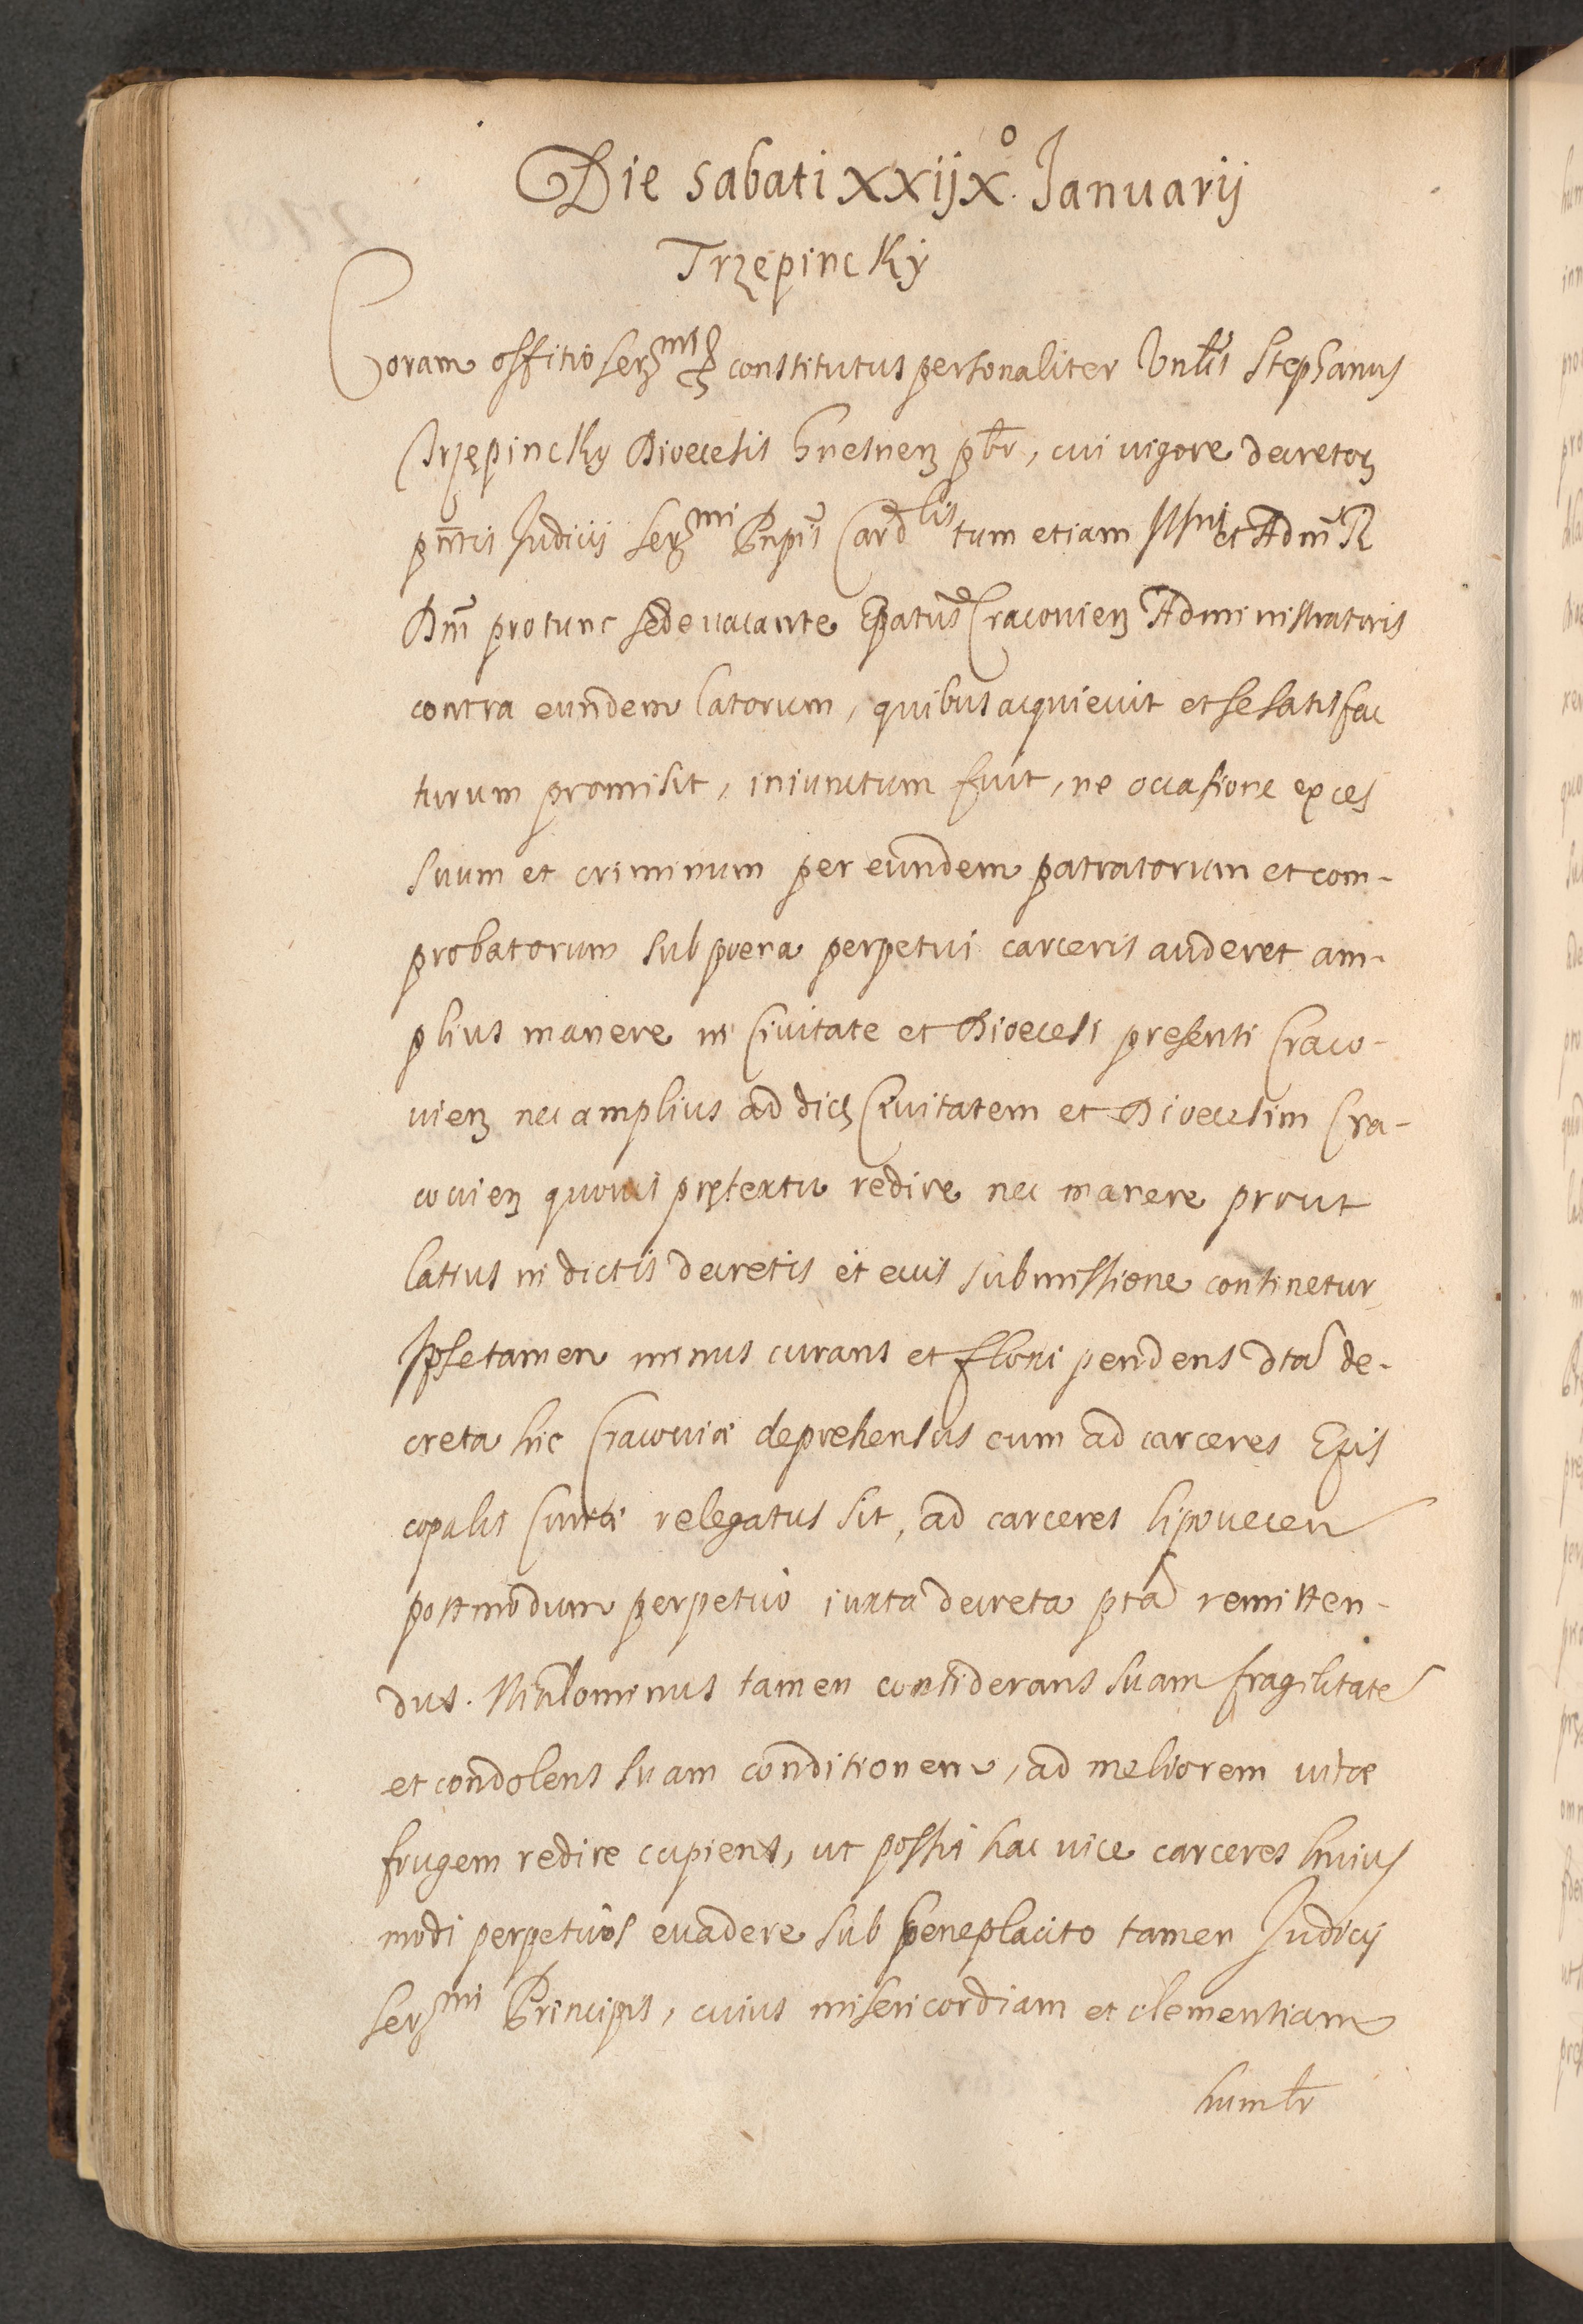 Die sabati xxiix.º Januarij
Trzępincky
Coram offitio Serᵐⁱ constitutus personaliter Vnlis Stephanus
Trzępincky Diocesis Gnesnen pbr, cui uigore decretoꝝ
pntis Judicij Serᵐⁱ Prnpis Cardˡⁱˢ tum etiam Illsmi et Admʳ R
Dni pro tunc sede uacante Epatus Cracouien Administratoris
contra eundem latorum, quibus acquieuit et se satisfac
turum promisit, iniunctum fuit, ne occasione exces
suum et criminum per eundem patratorum et com-
probatorum sub poena perpetui carceris auderet am-
plius manere in Ciuitate et Diocesi presenti Craco-
uien nec amplius ad dictꝫ Ciuitatem et Diocesim Cra-
couien quouis prętextu redire nec manere prout
latius in dictis decretis et eius submissione continetur,
Ipse tamen minus curans et floci pendens dta de-
creta hic Cracouiæ deprehensus cum ad carceres Epis
copalis Curiæ relegatus sit, ad carceres Lipouecen
postmodum perpetuo iuxta decreta pta remitten-
dus. Nihlominus tamen considerans suam fragilitatē
et condolens suam conditionem, ad meliorem uitæ
frugem redire cupiens, ut possit hac uice carceres huius
modi perpetuos euadere sub beneplacito tamen Judicij
Serᵐⁱ Principis, cuius misericordiam et clementiam
humlr